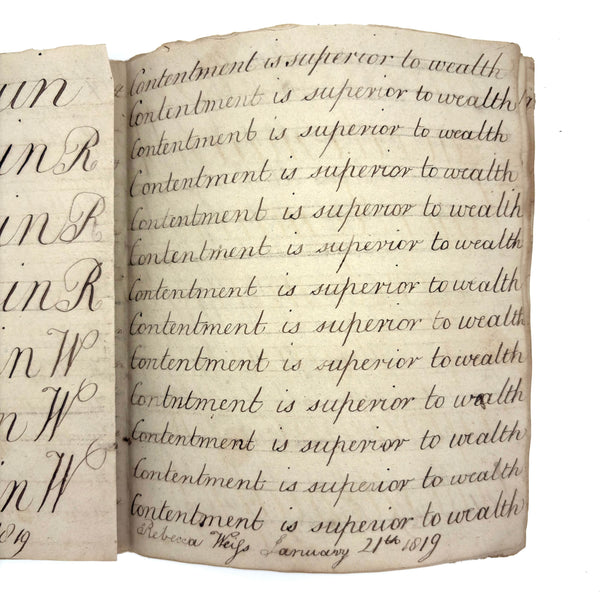 un
in R
in R
in R
in W
n W
in W
819
Contentment is superior to wealth
Contentment is superior to wealth
Contentment is superior to wealth
Contentment is superior to wealth
Contentment is superior to wealth
Contentment is superior to wealth
Contentment is superior to wealth
Contentment is superior to wealth
Contentment is superior to wealth
Contentment is superior to wealth
Contentment is superior to wealth
Contentment is superior to wealth
Contentment is superior to wealth
Rebecca Weiſs January 21th 1819